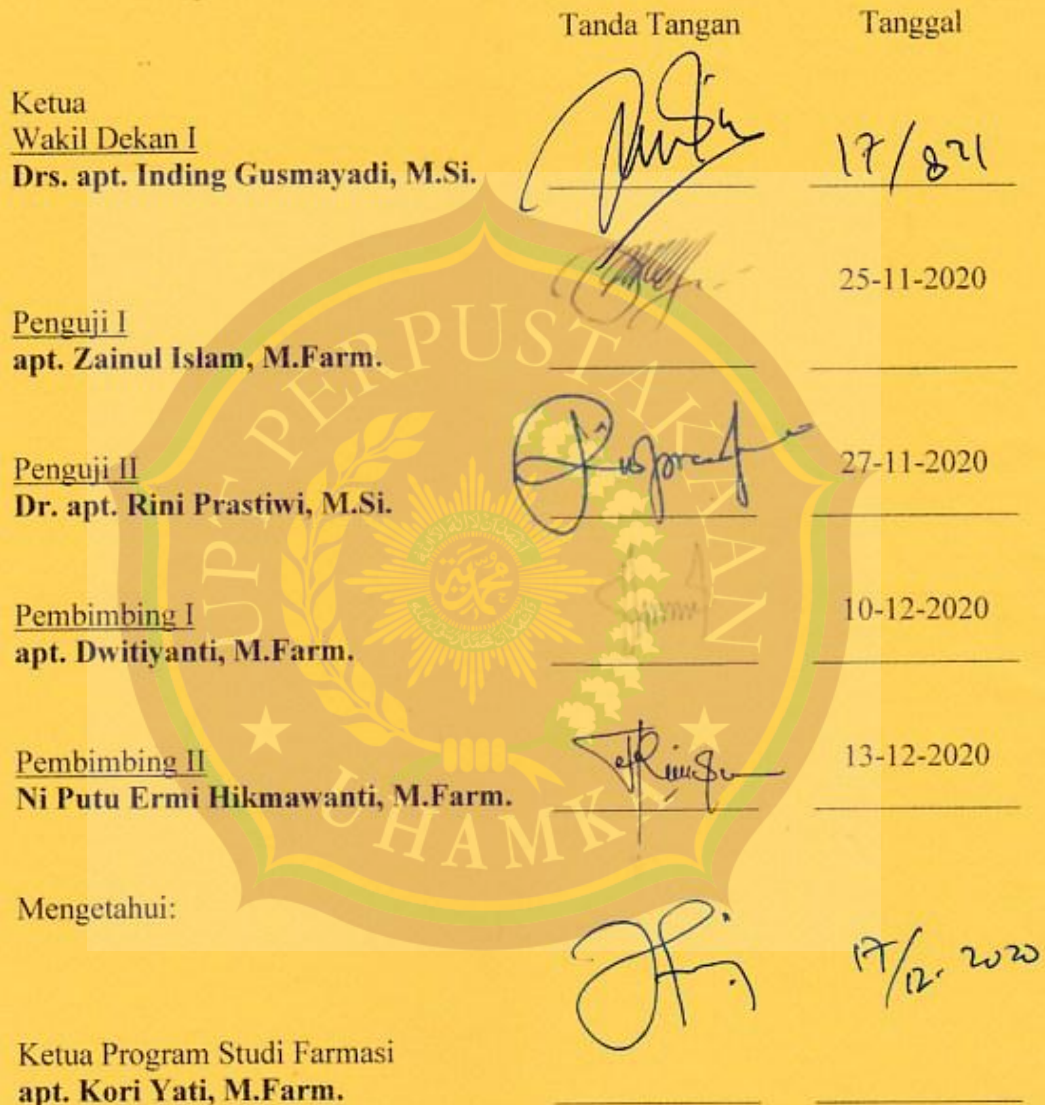 Tanda Tangan Tanggal
Ketua
Wakil Dekan I
Drs. apt. Inding Gusmayadi, M.Si. 17/821
25-11-2020
Penguji I
apt. Zainul Islam, M.Farm.
Penguji II 27-11-2020
Dr. apt. Rini Prastiwi, M.Si.
Pembimbing I 10-12-2020
apt. Dwitiyanti, M.Farm.
Pembimbing II 13-12-2020
Ni Putu Ermi Hikmawanti, M.Farm.
Mengetahui:
17/12-2020
Ketua Program Studi Farmasi
apt. Kori Yati, M.Farm.
UPT PERPUSTAKAAN
UHAMKA